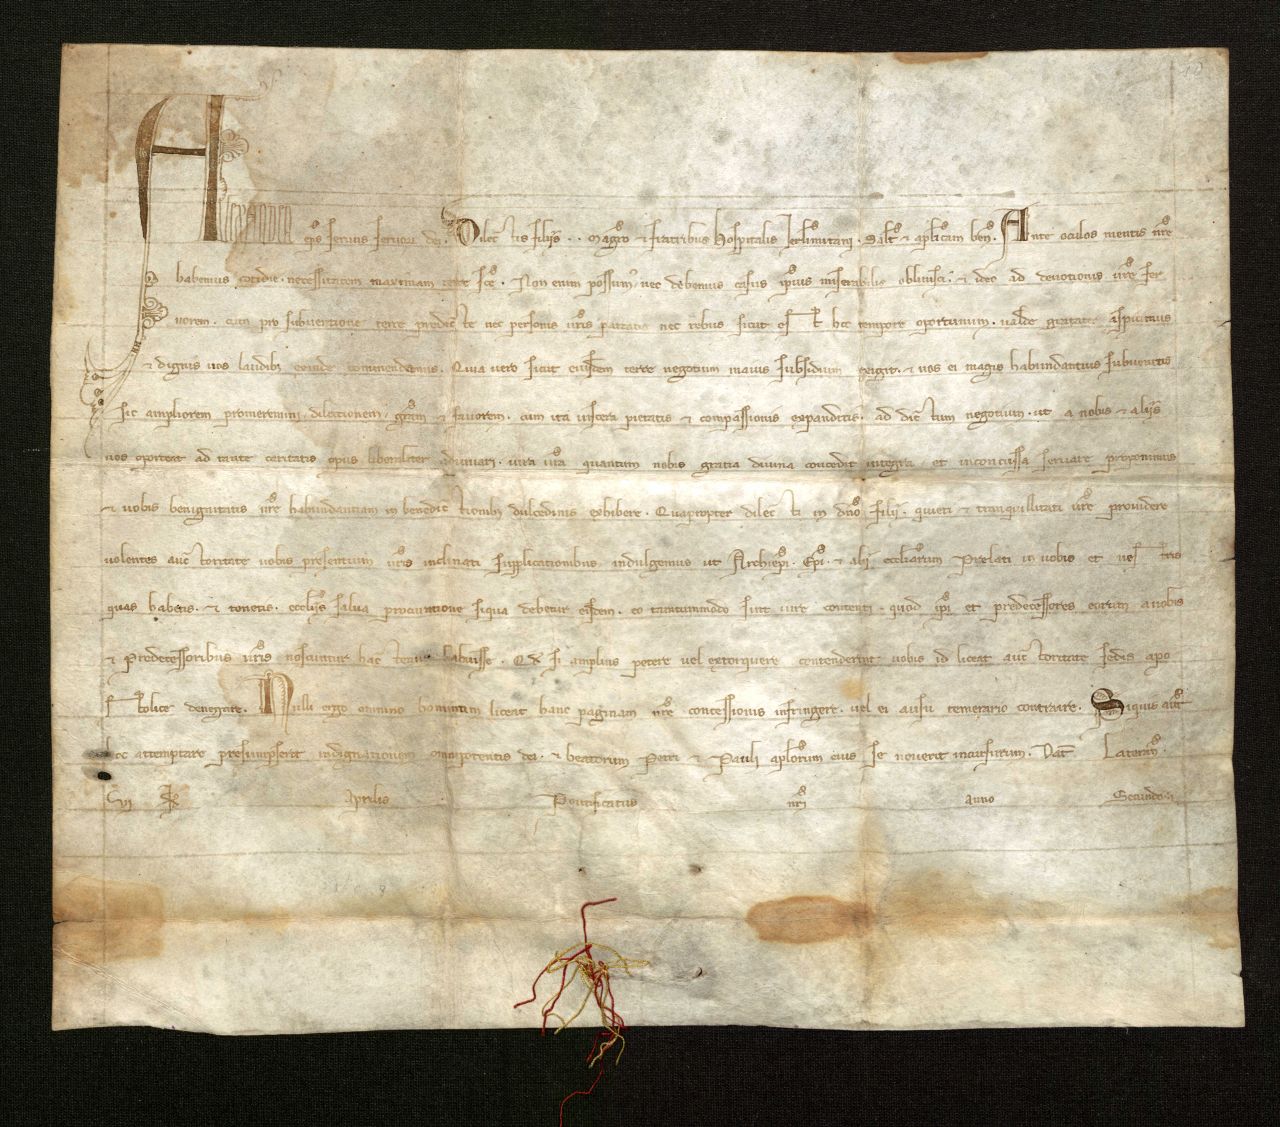 Alexander ep̄s seruus seruoꝝ dei. Dilectis filiis .. Magr̄o et fratribus Hospitalis Ierl̄imitani. Salt̄ et aplicam ben̄. Ante oculos mentis nr̄e
habemus cotidie necessitatem maximam terre sc̄e. Non enim possum᾽ nec debemus casus ip̄ius miserabilis obliuisci. et ideo ad deuotionis ur̄e fer
uorem. cum pro subuentione terre predicte nec personis ur̄is parcatis nec rebus sicut est hoc tempore oportunum. ualde gratanter aspicimus
et dignis uos laudibꝫ exinde commendamus. Quia uero sicut eiusdem terre negotium maius subsidium exigit. et uos ei magis habundantius subuenitis
sic ampliorem promeremini dilectionem gr̄am et fauorem. cum ita uiscera pietatis et compassionis expanditis. ad dictum negotium. ut a nobis et aliis
uos oporteat ad tante caritatis opus liberaliter adiuuari. iura ur̄a quantum nobis gratia diuina concedit integra et inconcussa seruare proponimus
et uobis benignitatis nr̄e habundantiam in benedictionibꝫ dulcedinis exhibere. Quapropter dilecti in dn̄o filii. quieti et tranquillitati ur̄e prouidere
uolentes auctoritate uobis presentium ur̄is inclinati supplicationibus indulgemus ut Archiep̄i. Ep̄i. et alii eccliar̄um Prelati in uobis et uestris
quas habetis. et tenetis. eccliis salua procuratione siqua debetur eisdem. eo tantummodo sint iure contenti. quod ip̄i et predecessores eorum a uobis
et Predecessoribus ur̄is noscuntur hactenus habuisse. Qd̄ si amplius petere uel extorquere contenderint uobis id liceat auctoritate sedis apo
stolice denegare. Nulli ergo omnino hominum liceat hanc paginam nr̄e concessionis infringere. uel ei ausu temerario contraire. Siquis aut̄
hoc attemptare presumpserit indignationem omnipotentis dei. et beatorum Petri et Pauli apl̄orum eius se nouerit incursurum. Dat̄ Lateran̄.
vi kl̄ Aprilis Pontificatus nr̄i anno Secundo.